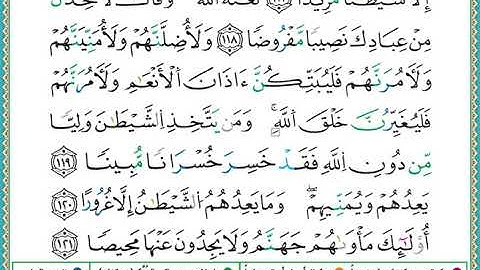 إِلَّا شَيْطَٰنًا مَّرِيدًا ١١٧ لَّعَنَهُ ٱللَّهُ ۘ وَقَالَ لَأَتَّخِذَنَّ
مِنْ عِبَادِكَ نَصِيبًا مَّفْرُوضًا ١١٨ وَلَأُضِلَّنَّهُمْ وَلَأُمَنِّيَنَّهُمْ
وَلَأٓمُرَنَّهُمْ فَلَيُبَتِّكُنَّ ءَاذَانَ ٱلْأَنْعَٰمِ وَلَأٓمُرَنَّهُمْ
فَلَيُغَيِّرُنَّ خَلْقَ ٱللَّهِ ۚ وَمَن يَتَّخِذِ ٱلشَّيْطَٰنَ وَلِيًّا
مِّن دُونِ ٱللَّهِ فَقَدْ خَسِرَ خُسْرَانًا مُّبِينًا ١١٩
يَعِدُهُمْ وَيُمَنِّيهِمْ ۖ وَمَا يَعِدُهُمُ ٱلشَّيْطَٰنُ إِلَّا غُرُورًا ١٢٠
أُو۟لَٰٓئِكَ مَأْوَىٰهُمْ جَهَنَّمُ وَلَا يَجِدُونَ عَنْهَا مَحِيصًا ١٢١